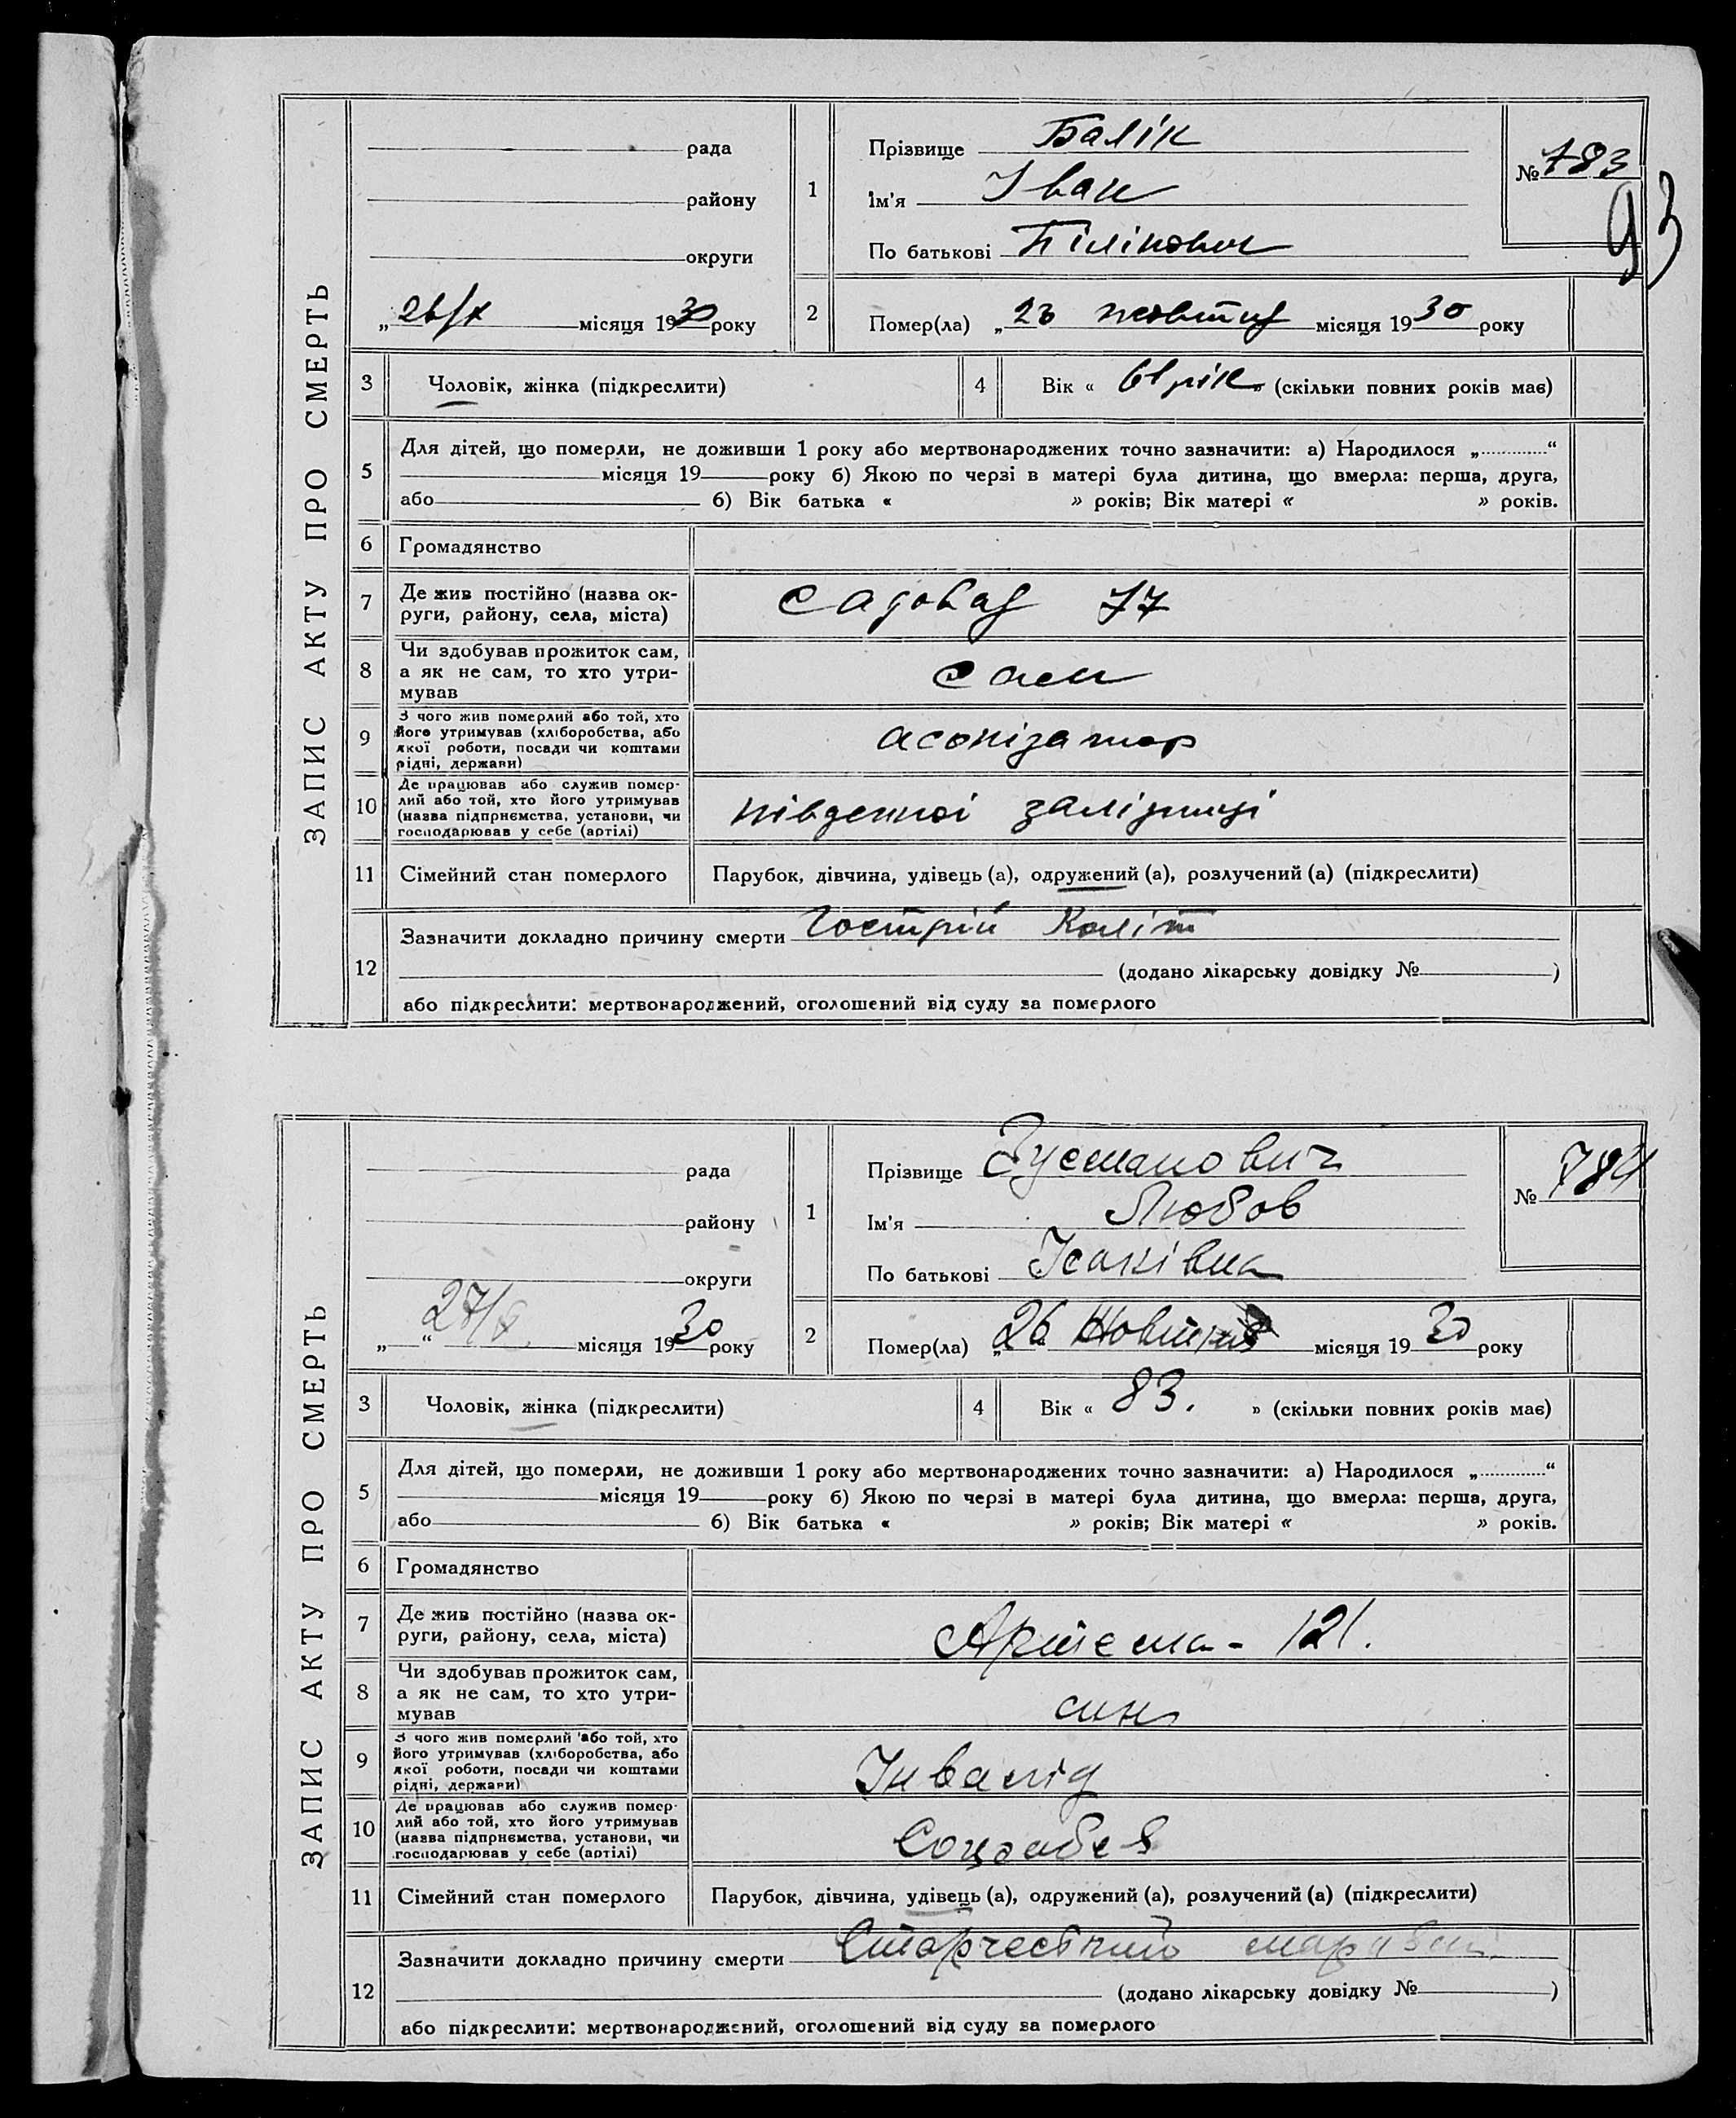 ЗАПИС АКТУ ПРО СМЕРТЬ
рада
району
округи
„26/X місяця 1930 року
1
Прізвище Балік
Ім'я Іван
По батькові Пілікович
№ 783
93
2
Помер(ла) „26 жовтня місяця 1930 року
3
Чоловік, жінка (підкреслити)
4
Вік « 61 рік » (скільки повних років має)
5
Для дітей, що померли, не доживши 1 року або мертвонароджених точно зазначити: а) Народилося „ “
місяця 19 року б) Якою по черзі в матері була дитина, що вмерла: перша, друга,
або б) Вік батька « » років; Вік матері « » років.
6
Громадянство
7
Де жив постійно (назва ок-
руги, району, села, міста)
Садовая 77
8
Чи здобував прожиток сам,
а як не сам, то хто утри-
мував
сам
9
З чого жив померлий або той, хто
його утримував (хліборобства, або
якої роботи, посади чи коштами
рідні, держави)
асонізатор
10
Де працював або служив помер-
лий або той, хто його утримував
(назва підприємства, установи, чи
господарював у себе (артілі)
південної залізниці
11
Сімейний стан померлого
Парубок, дівчина, удівець (а), одружений (а), розлучений (а) (підкреслити)
12
Зазначити докладно причину смерти Гострий Коліт
(додано лікарську довідку № )
або підкреслити: мертвонароджений, оголошений від суду за померлого
ЗАПИС АКТУ ПРО СМЕРТЬ
рада
району
округи
„ “ 27/X місяця 1930 року
1
Прізвище Зусманович
Ім'я Любов
По батькові Ісаківна
№ 784
2
Помер(ла) „26 Жовтня місяця 1930 року
3
Чоловік, жінка (підкреслити)
4
Вік « 83. » (скільки повних років має)
5
Для дітей, що померли, не доживши 1 року або мертвонароджених точно зазначити: а) Народилося „ “
місяця 19 року б) Якою по черзі в матері була дитина, що вмерла: перша, друга,
або б) Вік батька « » років; Вік матері « » років.
6
Громадянство
7
Де жив постійно (назва ок-
руги, району, села, міста)
Артема - 121.
8
Чи здобував прожиток сам,
а як не сам, то хто утри-
мував
син
9
З чого жив померлий або той, хто
його утримував (хліборобства, або
якої роботи, посади чи коштами
рідні, держави)
Інвалід
10
Де працював або служив помер-
лий або той, хто його утримував
(назва підприємства, установи, чи
господарював у себе (артілі)
Соцзабез
11
Сімейний стан померлого
Парубок, дівчина, удівець (а), одружений (а), розлучений (а) (підкреслити)
12
Зазначити докладно причину смерти
(додано лікарську довідку № )
або підкреслити: мертвонароджений, оголошений від суду за померлого